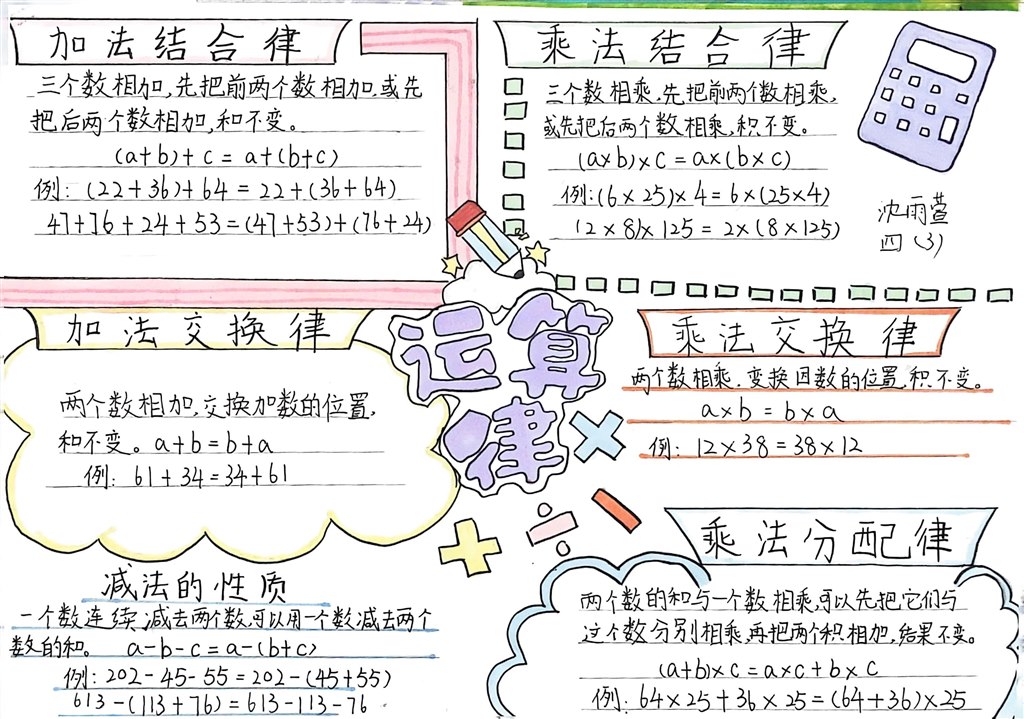 加法结合律
三个数相加,先把前两个数相加,或先
把后两个数相加,和不变。
(a+b)+c=a+(b+c)
例:(22+36)+64=22+(36+64)
47+76+24+53=(47+53)+(76+24)
乘法结合律
三个数相乘,先把前两个数相乘,
或先把后两个数相乘,积不变。
(a×b)×c=a×(b×c)
例:(6×25)×4=6×(25×4)
(2×8)×125=2×(8×125)
沈雨萱
四(3)
运算
律
加法交换律
两个数相加,交换加数的位置,
和不变。a+b=b+a
例:61+34=34+61
乘法交换律
两个数相乘,变换因数的位置,积不变。
a×b=b×a
例:12×38=38×12
减法的性质
一个数连续减去两个数,可以用一个数减去两个
数的和。 a-b-c=a-(b+c)
例:202-45-55=202-(45+55)
613-(113+76)=613-113-76
乘法分配律
两个数的和与一个数相乘,可以先把它们与
这个数分别相乘,再把两个积相加,结果不变。
(a+b)×c=a×c+b×c
例:64×25+36×25=(64+36)×25